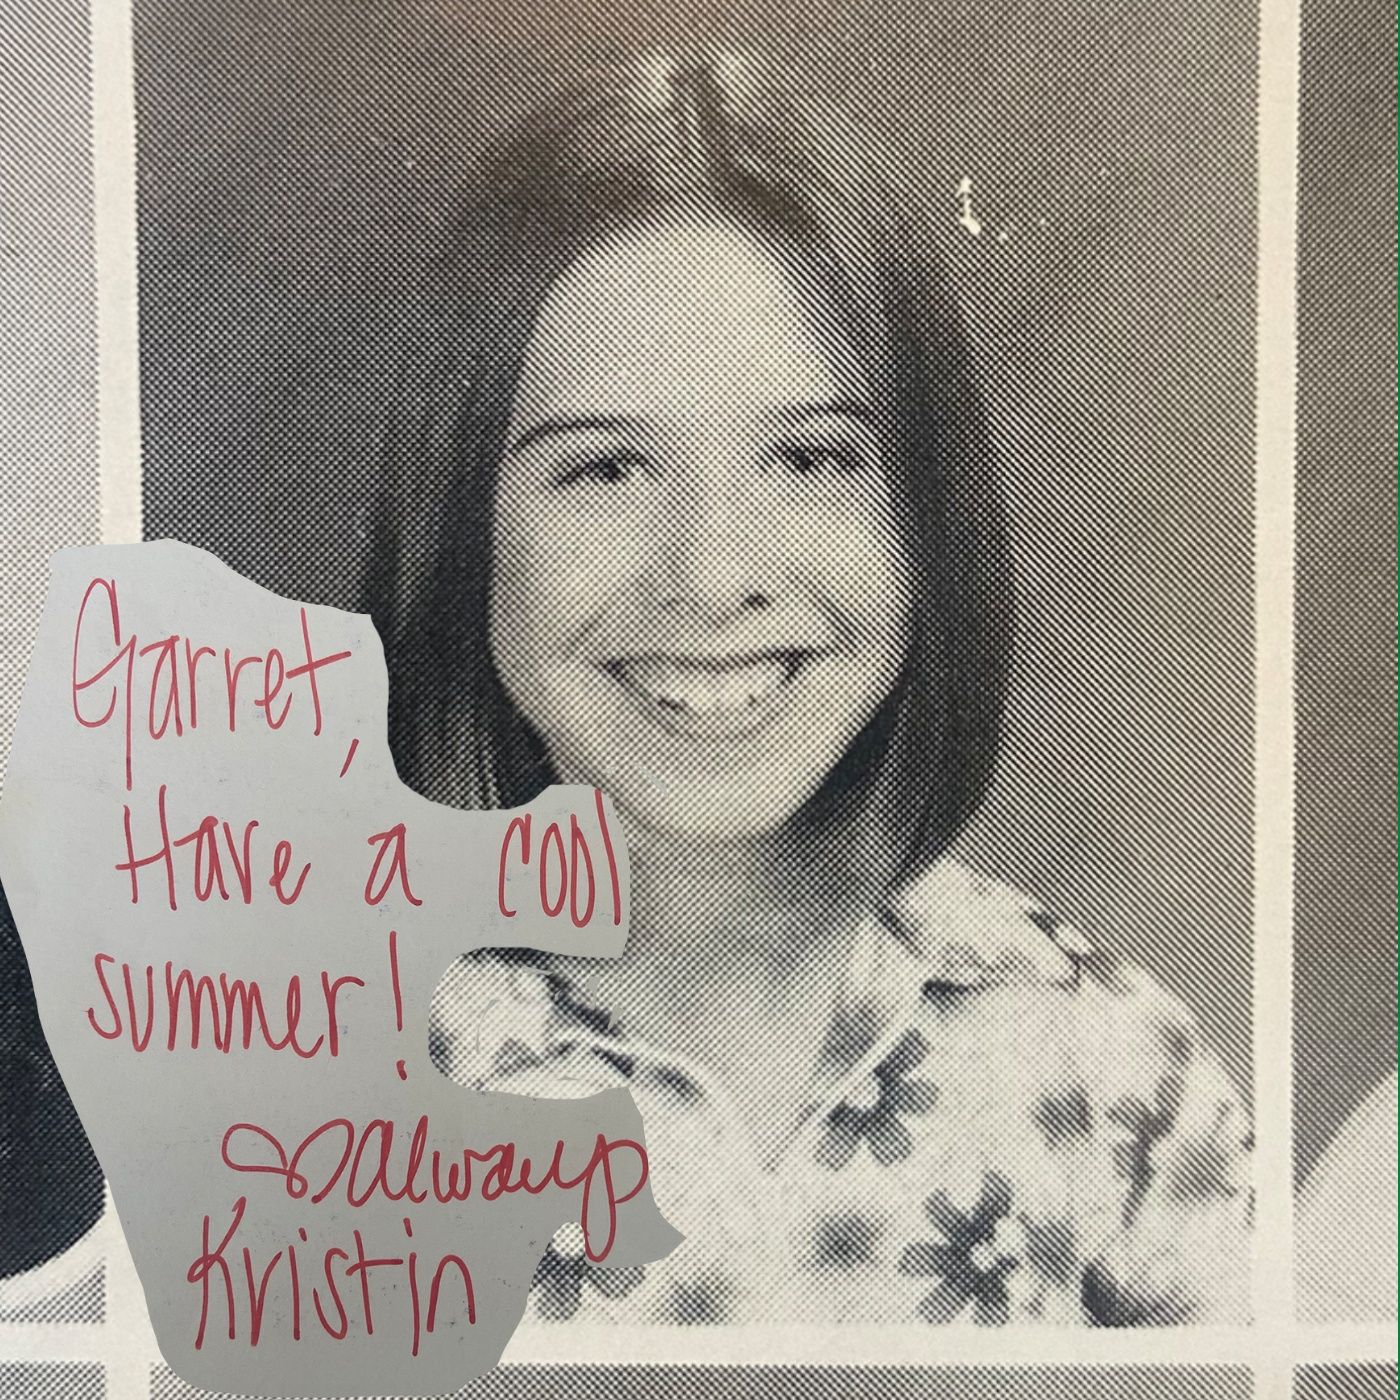 Garret,
Have a cool
summer!
♡ always
Kristin